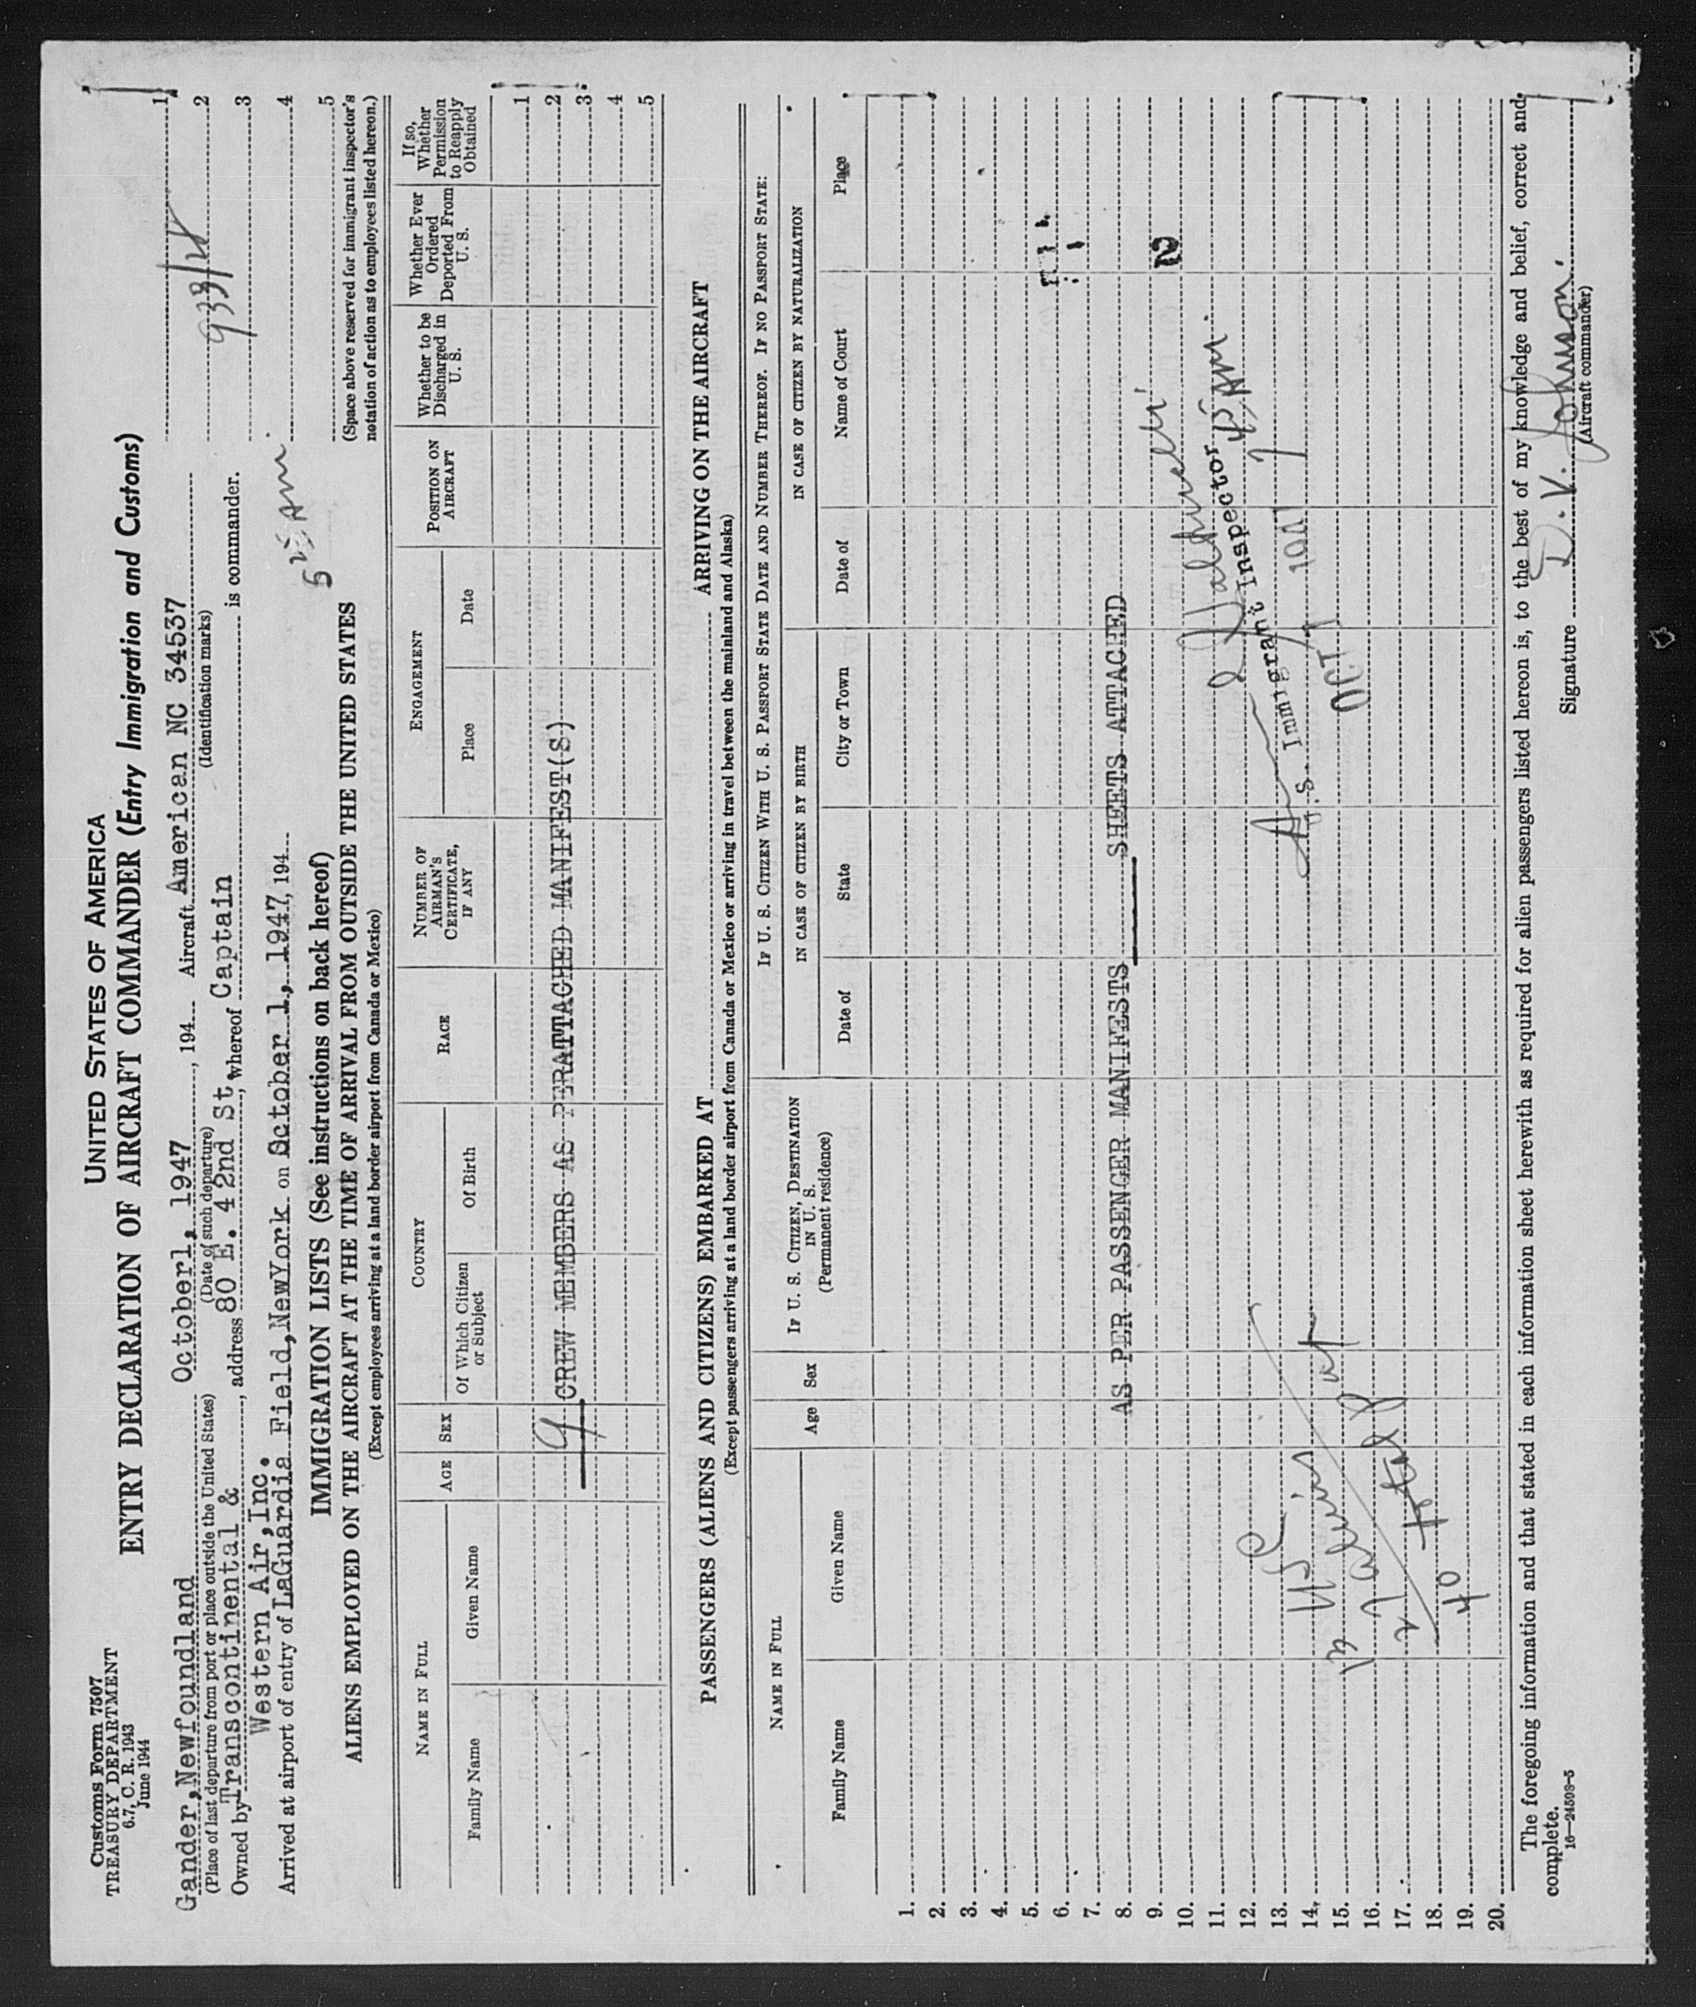 Customs Form 7507
TREASURY DEPARTMENT
6.7, C. R. 1943
June 1944
UNITED STATES OF AMERICA
ENTRY DECLARATION OF AIRCRAFT COMMANDER (Entry Immigration and Customs)
Gander, Newfoundland October1, 1947, 194 Aircraft American NC 34537
(Place of last departure from port or place outside the United States) (Date of such departure) (Identification marks)
Owned by Transcontinental &, address 80 E. 42nd St, whereof Captain is commander.
Western Air, Inc.
Arrived at airport of entry of LaGuardia Field, NewYork on October 1, 1947, 194
5 25 AM
1
2
3
4
5
(Space above reserved for immigrant inspector's
notation of action as to employees listed hereon.)
IMMIGRATION LISTS (See instructions on back hereof)
ALIENS EMPLOYED ON THE AIRCRAFT AT THE TIME OF ARRIVAL FROM OUTSIDE THE UNITED STATES
(Except employees arriving at a land border airport from Canada or Mexico)
NAME IN FULL
Family Name
Given Name
AGE
SEX
COUNTRY
Of Which Citizen
or Subject
Of Birth
RACE
NUMBER OF
AIRMAN'S
CERTIFICATE,
IF ANY
ENGAGEMENT
Place
Date
POSITION ON
AIRCRAFT
Whether to be
Discharged in
U. S.
Whether Ever
Ordered
Deported From
U. S.
If so,
Whether
Permission
to Reapply
Obtained
1
2
3
4
5
9 CREW MEMBERS AS PERATTACHED MANIFEST(S)
PASSENGERS (ALIENS AND CITIZENS) EMBARKED AT ARRIVING ON THE AIRCRAFT
(Except passengers arriving at a land border airport from Canada or Mexico or arriving in travel between the mainland and Alaska)
NAME IN FULL
Family Name
Given Name
Age
Sex
IF U. S. CITIZEN, DESTINATION
IN U. S.
(Permanent residence)
IF U. S. CITIZEN WITH U. S. PASSPORT STATE DATE AND NUMBER THEREOF. IF NO PASSPORT STATE:
IN CASE OF CITIZEN BY BIRTH
Date of
State
City or Town
IN CASE OF CITIZEN BY NATURALIZATION
Date of
Name of Court
Place
1.
2.
3.
4.
5.
6.
7.
8. AS PER PASSENGER MANIFESTS SHEETS ATTACHED
9.
10. 2
11.
12.
13. U.S. Immigrant Inspector
14.
15. OCT 1 1947
16.
17.
18.
19. 40
20.
The foregoing information and that stated in each information sheet herewith as required for alien passengers listed hereon is, to the best of my knowledge and belief, correct and
complete.
16—24508-5
Signature D. V. Johnson
(Aircraft commander)